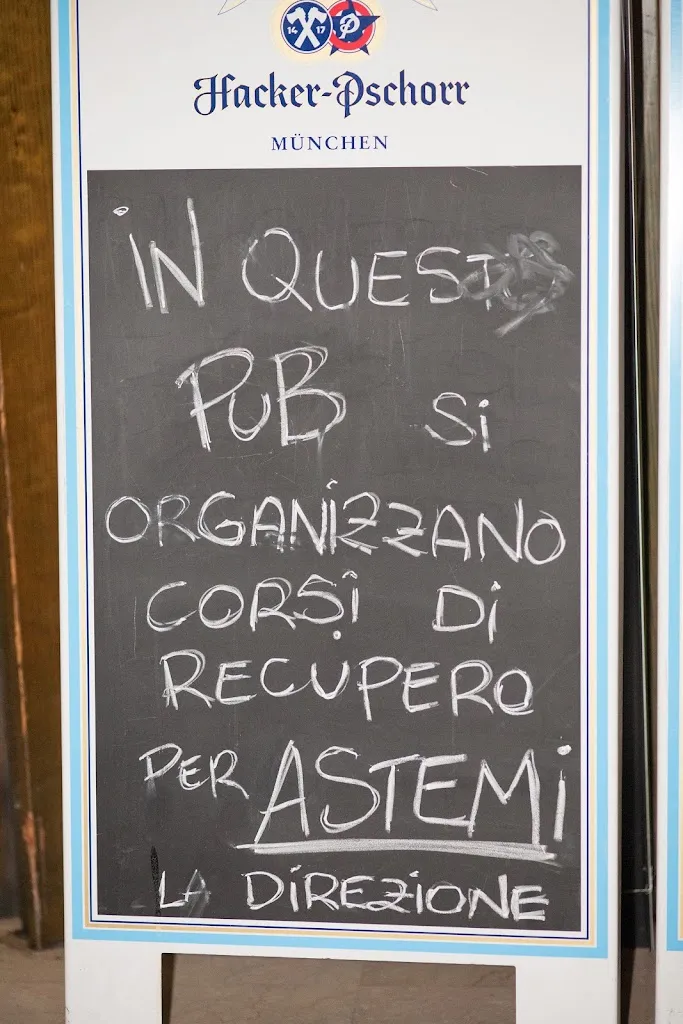 14 17 P
Hacker-Pschorr
MÜNCHEN
iN QUESTO
PUB Si
ORGANiZZANO
CORSi Di
RECUPERO
PER ASTEMi
LA DiREZiONE